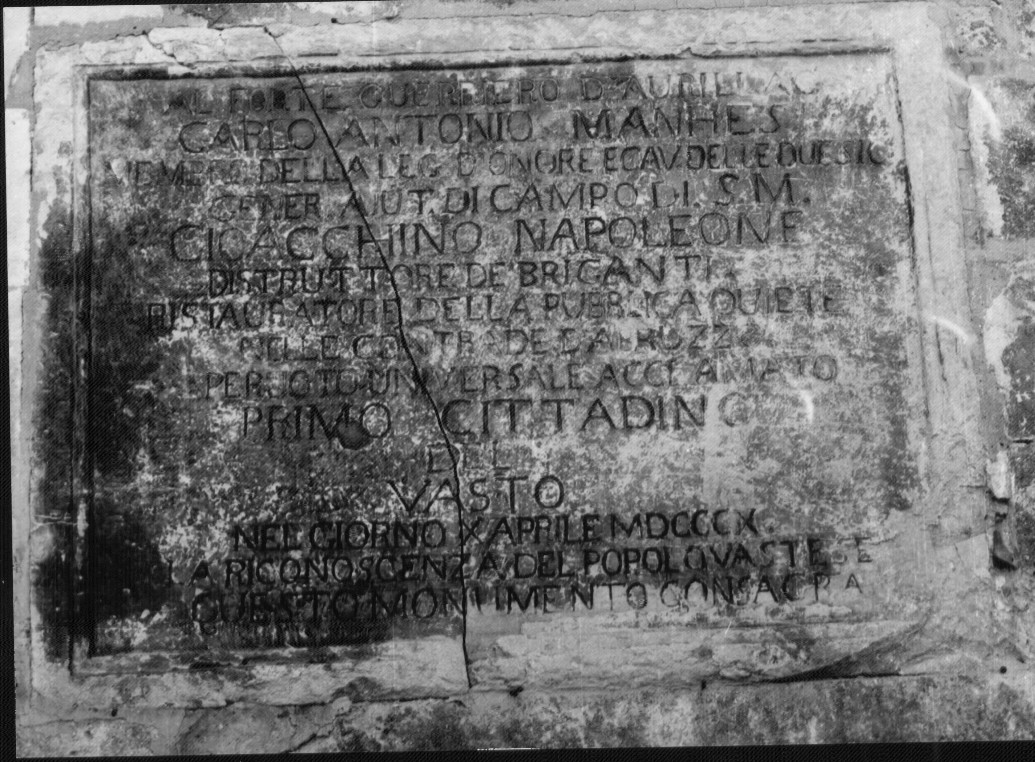 AL FORTE GUERRIERO D'AURILLAC
CARLO ANTONIO MANHES
MEMBRO DELLA LEG. D'ONORE E CAV. DELLE DUE SIC.
GENER. AJUT. DI CAMPO DI. S. M.
GIOACCHINO NAPOLEONE
DISTRUTTORE DE BRIGANTI.
RISTAURATORE DELLA PUBBLICA QUIETE
NELLE CONTRADE D'ABRUZZ
PER VOTO UNIVERSALE ACCLAMATO
PRIMO CITTADINO
DEL
VASTO
NEL GIORNO X APRILE MDCCCX.
LA RICONOSCENZA DEL POPOLO VASTESE
QUESTO MONUMENTO CONSACRA